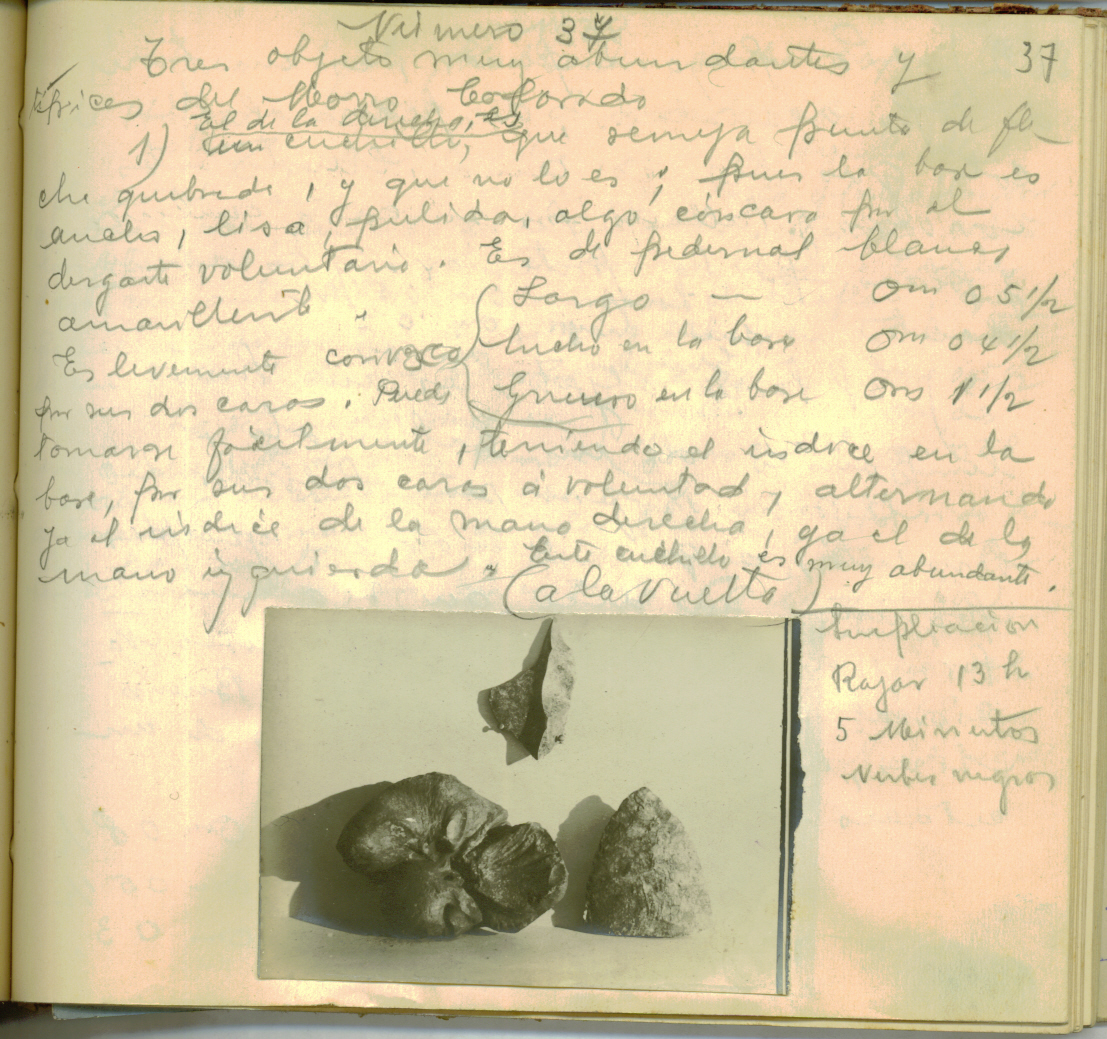 Número 37
37
Tres objeto muy abundantes y
típicos del Morro Colorado
El de la derecha, es
1) un cuchillo, que semeja punta de fle
cha quebrada, y que no lo es; pues la base es
ancha, lisa, pulida, algo cóncava por el
desgaste voluntario. Es de pedernal blanco
amarillento.
Largo — 0m 05 1/2
Ancho en la base 0m 04 1/2
Grueso en la base 0m 1 1/2
Es levemente convexo
por sus dos caras. Puede
tomarse fácilmente, teniendo el índice en la
base, por sus dos caras á voluntad, alternando
ya el índice de la mano derecha, ya el de la
mano izquierda. Este cuchillo es muy abundante.
(a la vuelta)
Ampliación
13 h
5 Minutos
Nubes negros